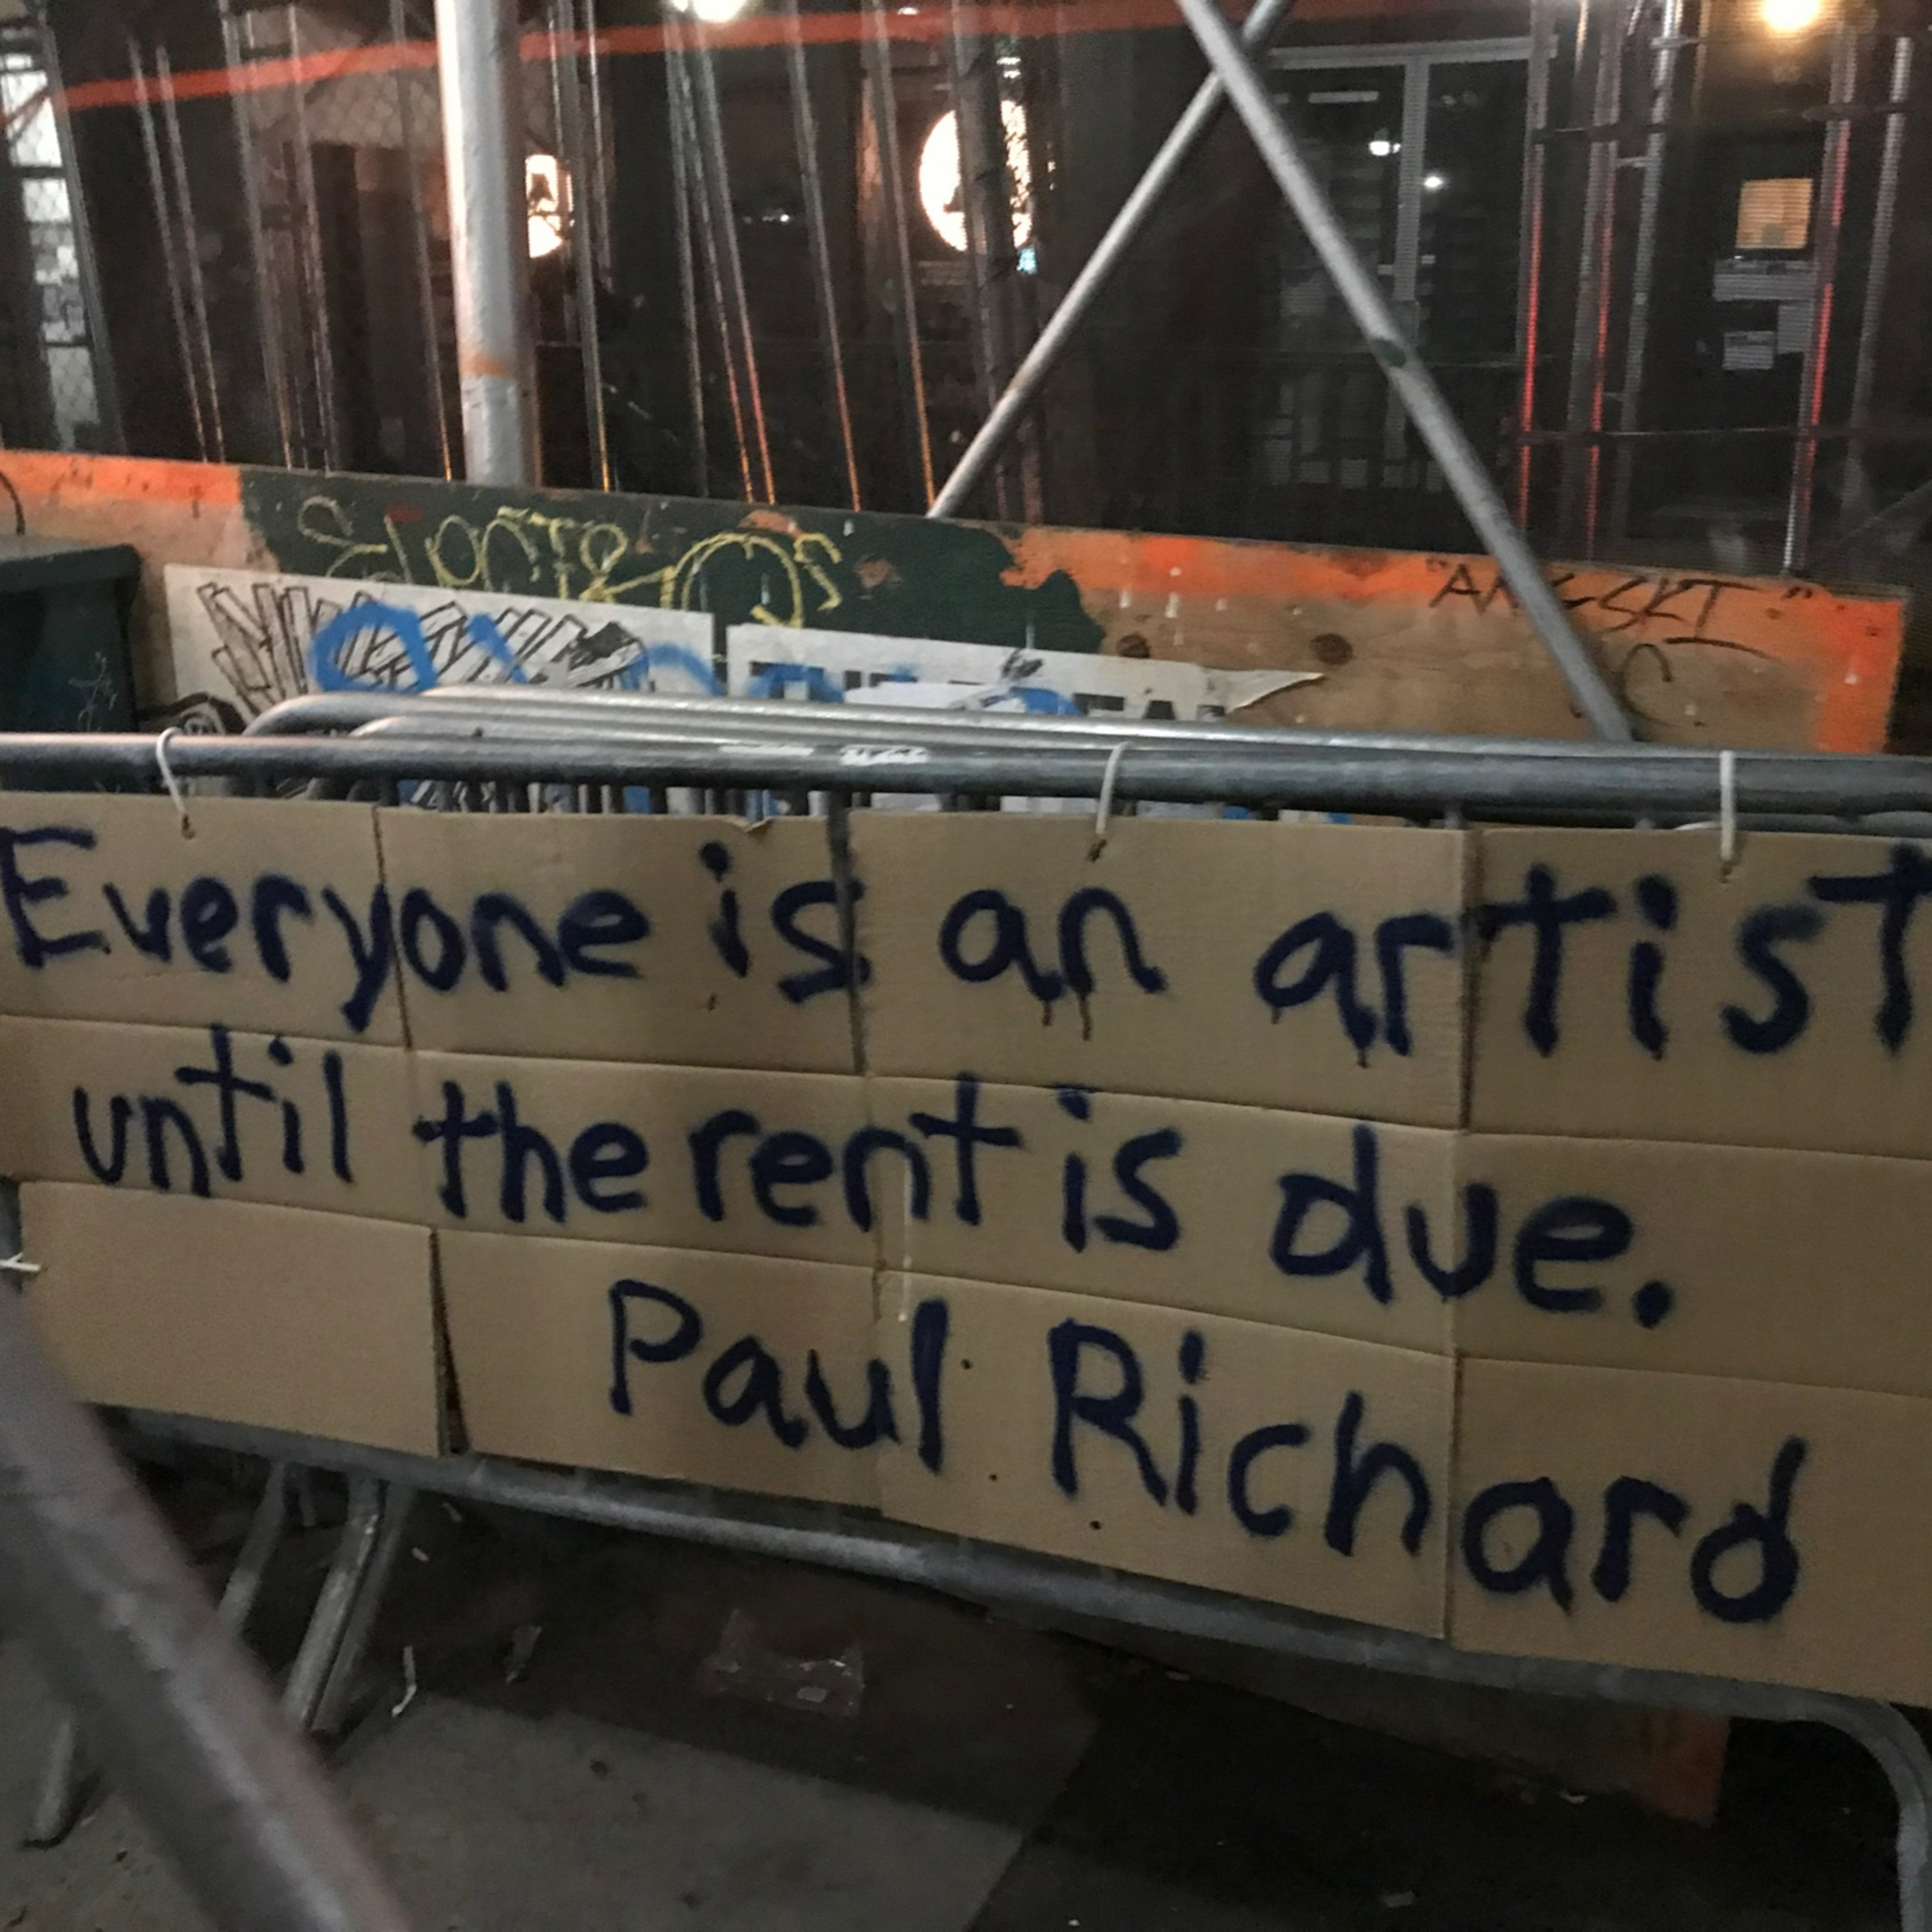 Everyone is an artist
until the rent is due.
Paul Richard